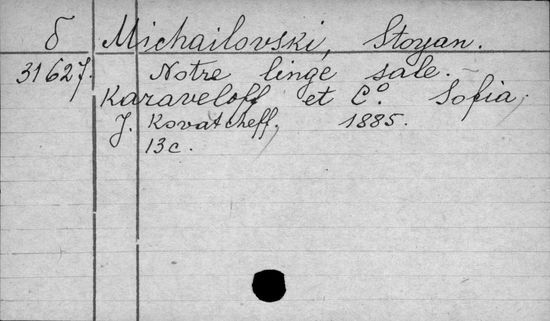 б Michailovski, Stoyan.
31627. Notre linge sale.
Karaveloff et Cº. Sofia,
J. Kovatcheff, 1885.
13c.